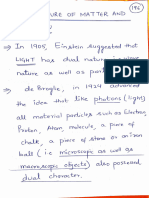 URE OF MATTER AND
196
In 1905, Einstein suggested that
LIGHT has dual nature
nature as well as
de Broglie, in 1924 advanced
the idea that like photons (light)
all material particles such as Electron
Proton, Atom, molecule, a piece of
chalk, a piece of stone or an iron
ball (i.e. microscopic as well as
macroscopic objects) also possessed
dual character.